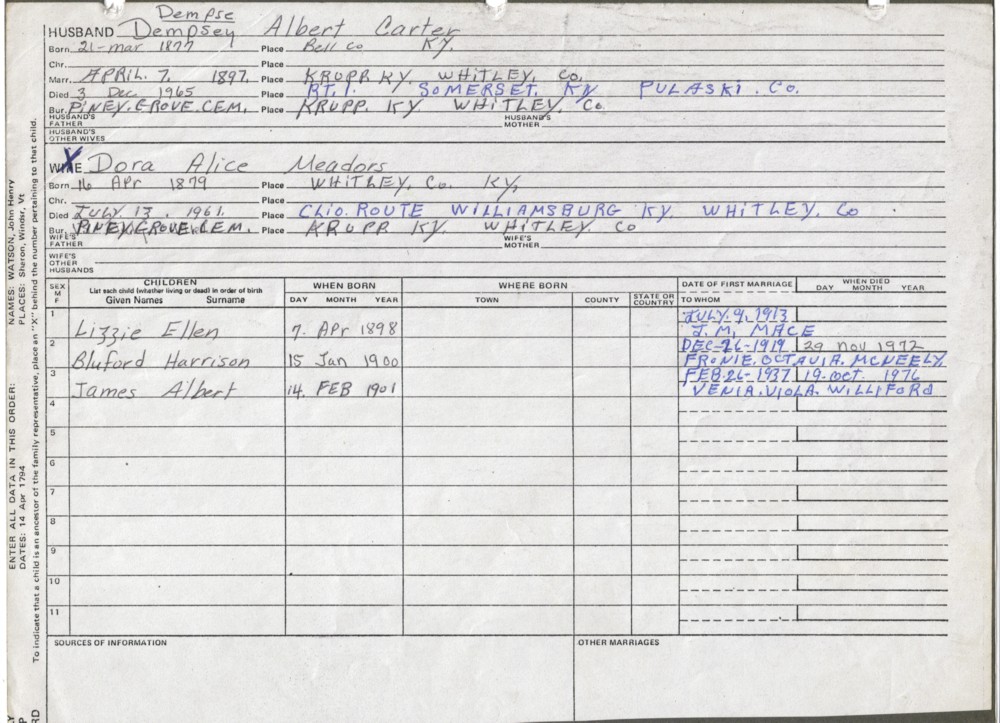 Dempse
HUSBAND Dempsey Albert Carter
Born 21-mar 1877 Place Bell Co KY.
Chr. Place
Marr. APRIL. 7, 1897. Place KRUPP KY WHITLEY, Co.
Died 3 Dec 1965 Place RT. 1. SOMERSET, KY PULASKI. Co.
Bur. PINEY. GROVE. CEM. Place KRUPP. KY WHITLEY, Co
HUSBAND'S FATHER HUSBAND'S MOTHER
HUSBAND'S OTHER WIVES
X
WIFE Dora Alice Meadors
Born 16 Apr 1879 Place WHITLEY, Co. KY,
Chr. Place
Died JULY. 13, 1961. Place CLIO. ROUTE WILLIAMSBURG KY. WHITLEY. Co
Bur. PINEY. GROVE. CEM. Place KRUPP KY. WHITLEY. Co
WIFE'S FATHER WIFE'S MOTHER
WIFE'S OTHER HUSBANDS
SEX M F CHILDREN WHEN BORN WHERE BORN DATE OF FIRST MARRIAGE WHEN DIED
List each child (whether living or dead) in order of birth
Given Names Surname DAY MONTH YEAR TOWN COUNTY STATE OR COUNTRY TO WHOM DAY MONTH YEAR
1 JULY. 9, 1913
Lizzie Ellen 7. Apr 1898 J. M. MACE
2 DEC-26-1919 29 nov 1972
Bluford Harrison 15 Jan 1900 FRONIE. OCTAVIA. MCNEELY
3 FEB-26-1937 19. oct. 1976
James Albert 14. FEB 1901 VENIA. VIOLA. WILLIFORD
4
5
6
7
8
9
10
11
SOURCES OF INFORMATION OTHER MARRIAGES
ENTER ALL DATA IN THIS ORDER: NAMES: WATSON, John Henry
DATES: 14 Apr 1794 PLACES: Sharon, Windsr, Vt
To indicate that a child is an ancestor of the family representative, place an "X" behind the number pertaining to that child.